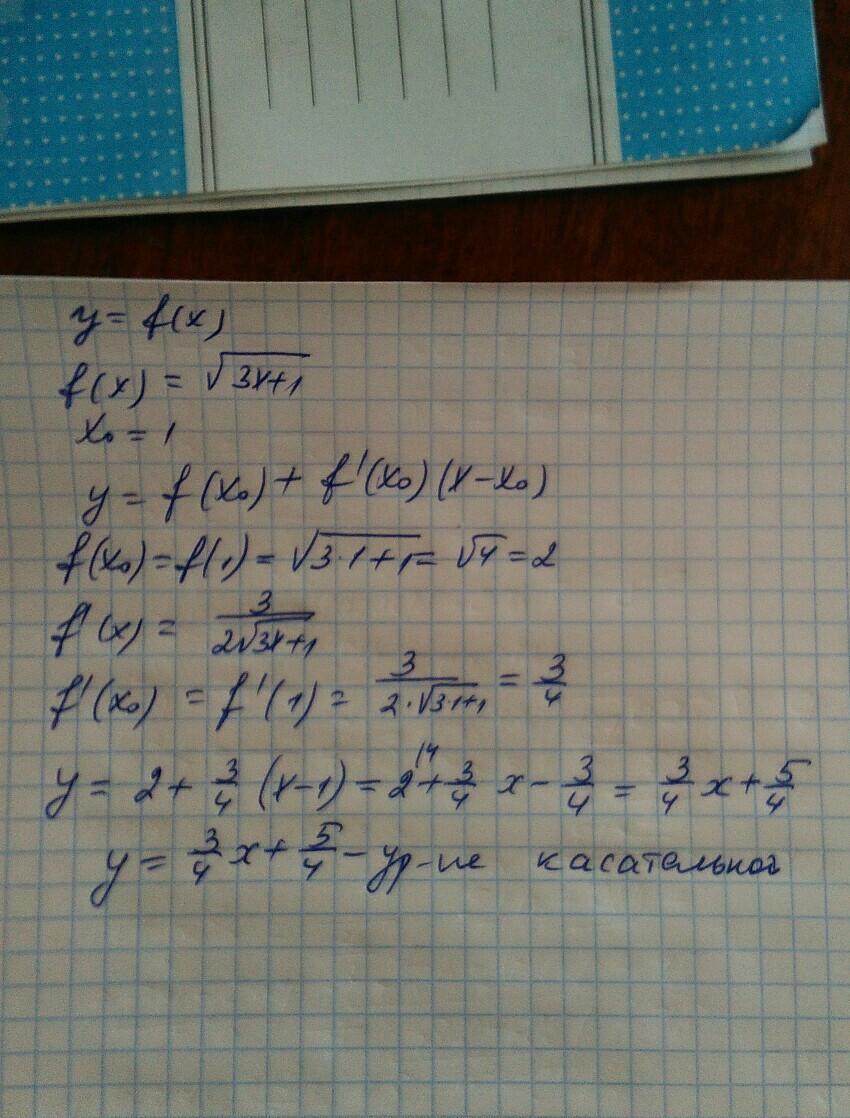 y = f(x)
f(x) = √(3x+1)
x₀ = 1
y = f(x₀) + f'(x₀)(x-x₀)
f(x₀) = f(1) = √(3·1+1) = √4 = 2
f'(x) = 3/(2√(3x+1))
f'(x₀) = f'(1) = 3/(2·√(3·1+1)) = 3/4
y = 2 + 3/4 (x-1) = 2 ^(/4) + 3/4 x - 3/4 = 3/4 x + 5/4
y = 3/4 x + 5/4 - ур-ие касательной